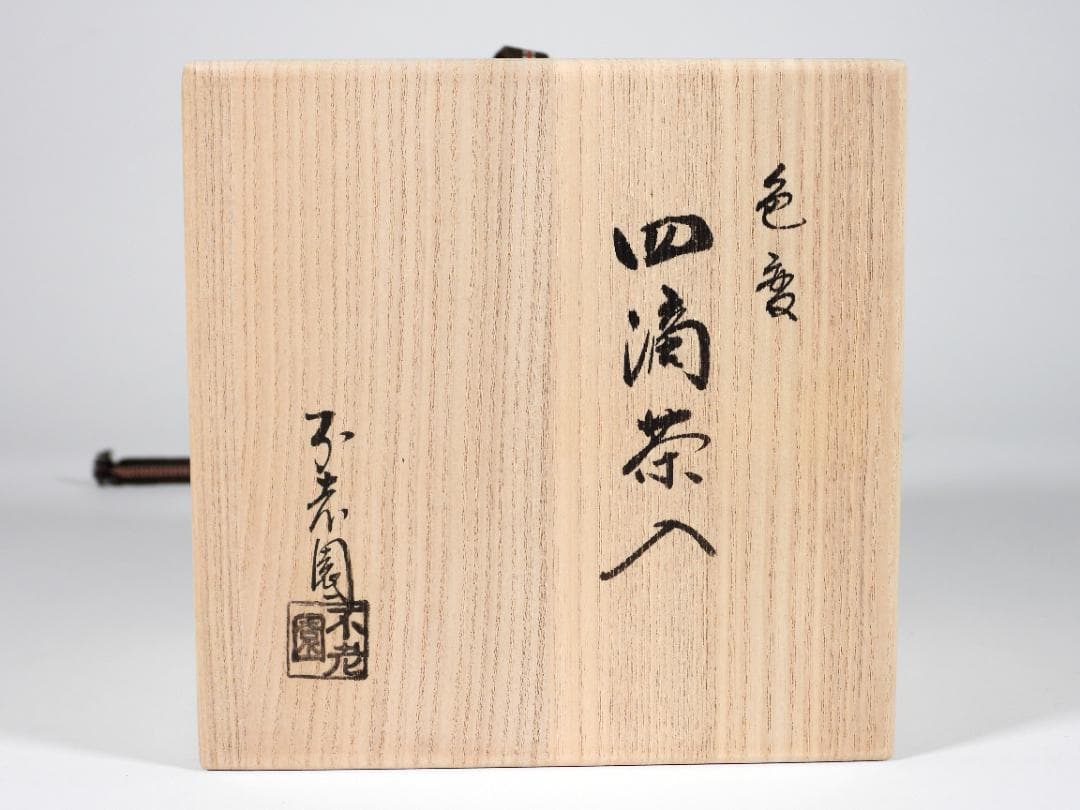 色変
四滴茶入
不老園
不老園